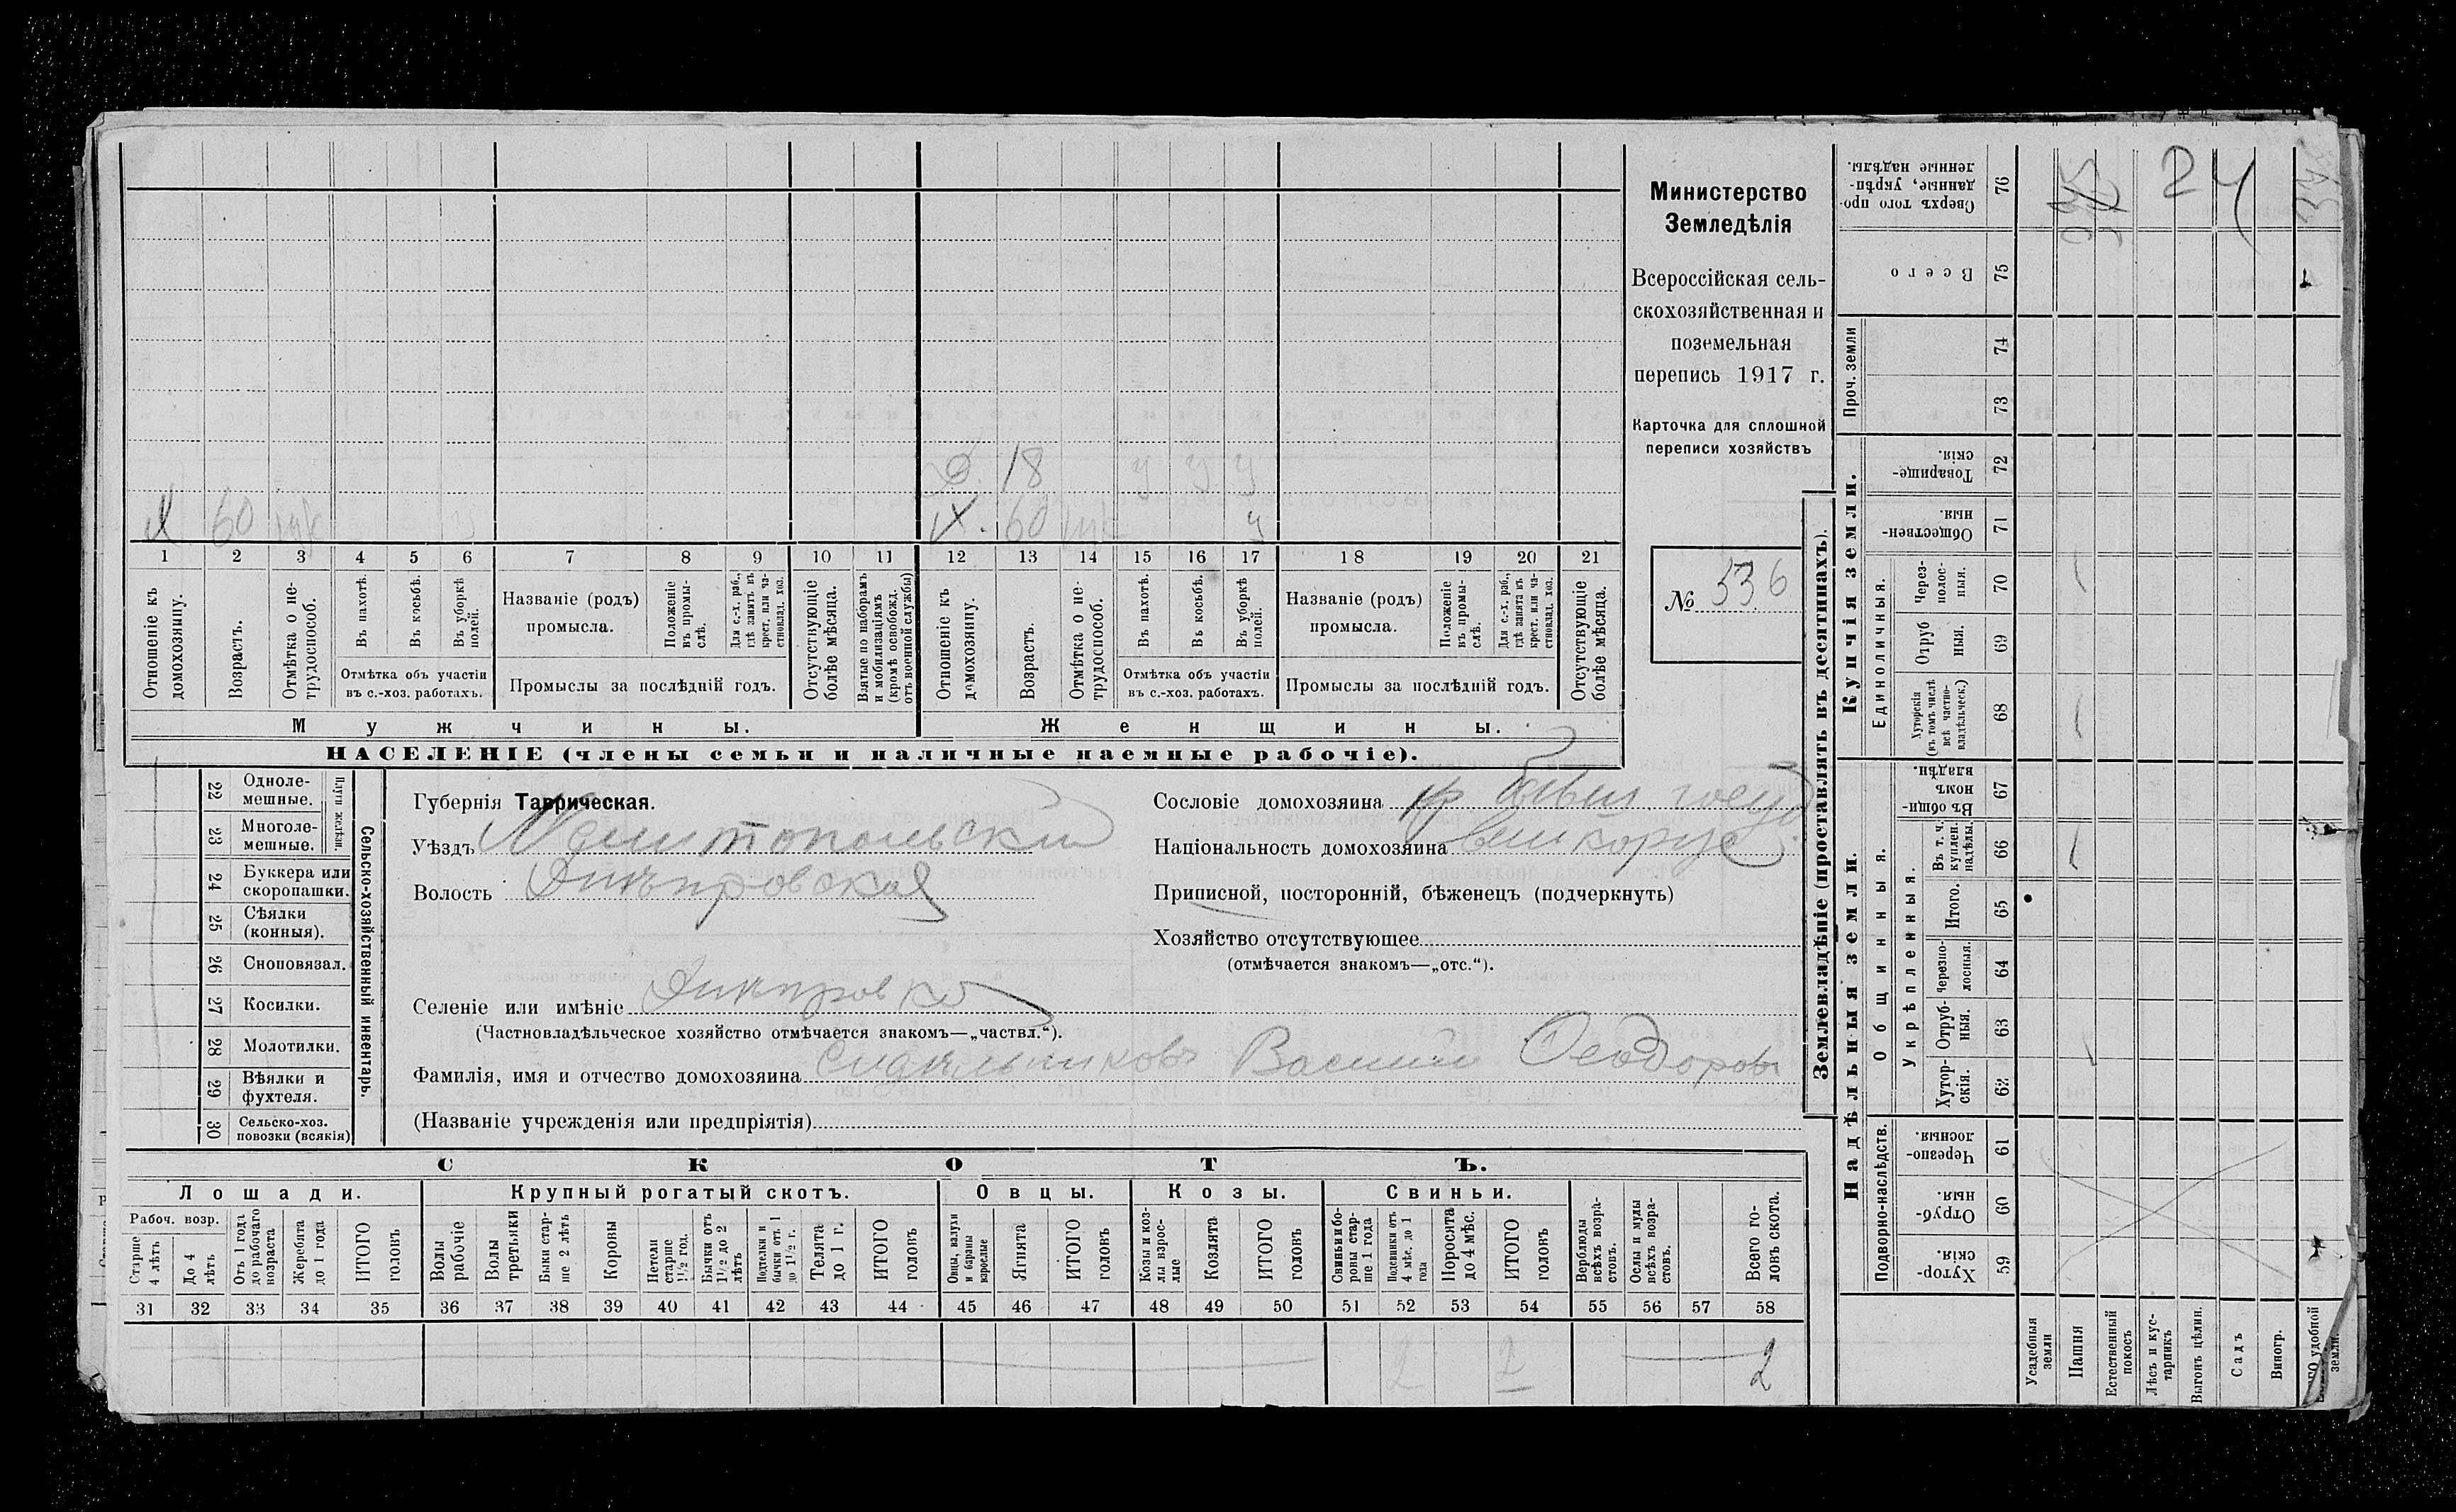 Министерство
Земледѣлія
Всероссійская сель-
скохозяйственная и
поземельная
перепись 1917 г.
Карточка для сплошной
переписи хозяйствъ
№ 536
Д. 18 у у у
Х 60 Х. 60 у
1 2 3 4 5 6 7 8 9 10 11 12 13 14 15 16 17 18 19 20 21
Отношеніе къ домохозяину.
Возрастъ.
Отмѣтка о не-трудоспособ.
Въ пахотѣ.
Въ косьбѣ.
Въ уборкѣ полей.
Отмѣтка объ участіи
въ с.-хоз. работахъ.
Названіе (родъ)
промысла.
Положеніе въ промы-слѣ.
Для с.-х. раб., гдѣ занятъ въ крест. или ча-стновлад. хоз.
Промыслы за послѣдній годъ.
Отсутствующіе болѣе мѣсяца.
Взятые по наборамъ и мобилизаціямъ (кромѣ освобожд. отъ военной службы)
Отношеніе къ домохозяину.
Возрастъ.
Отмѣтка о не-трудоспособ.
Въ пахотѣ.
Въ косьбѣ.
Въ уборкѣ полей.
Отмѣтка объ участіи
въ с.-хоз. работахъ.
Названіе (родъ)
промысла.
Положеніе въ промы-слѣ.
Для с.-х. раб., гдѣ занята въ крест. или ча-стновлад. хоз.
Промыслы за послѣдній годъ.
Отсутствующіе болѣе мѣсяца.
Мужчины. Женщины.
НАСЕЛЕНІЕ (члены семьи и наличные наемные рабочіе).
Сельско-хозяйственный инвентарь.
Плуги желѣзн.
22 Одноле-мешные.
23 Многоле-мешные.
24 Буккера или скоропашки.
25 Сѣялки (конныя).
26 Сноповязал.
27 Косилки.
28 Молотилки.
29 Вѣялки и фухтеля.
30 Сельско-хоз. повозки (всякія)
Губернія Таврическая.
Уѣздъ Мелитопольскій
Волость Днѣпровская
Селеніе или имѣніе Днѣпровка
(Частновладѣльческое хозяйство отмѣчается знакомъ—„частвл.“).
Фамилія, имя и отчество домохозяина Сидѣльниковъ Василій Ѳеодоровъ
(Названіе учрежденія или предпріятія)
Сословіе домохозяина кр бывш госуд
Національность домохозяина великорус
Приписной, посторонній, бѣженецъ (подчеркнуть)
Хозяйство отсутствующее
(отмѣчается знакомъ—„отс.“).
СКОТЪ.
Лошади. Крупный рогатый скотъ. Овцы. Козы. Свиньи.
Рабоч. возр.
Старше 4 лѣтъ
До 4 лѣтъ
Отъ 1 года до рабочаго возраста
Жеребята до 1 года
ИТОГО головъ
Волы рабочіе
Волы третьяки
Быки стар-ше 2 лѣтъ
Коровы
Нетели старше 1½ год.
Бычки отъ 1½ до 2 лѣтъ
Подтелки и бычки отъ 1 до 1½ г.
Телята до 1 г.
ИТОГО головъ
Овцы, валухи и бараны взрослые
Ягнята
ИТОГО головъ
Козы и коз-лы взрос-лые
Козлята
ИТОГО головъ
Свиньи и бо-ровы стар-ше 1 года
Подсвинки отъ 4 мѣс. до 1 года
Поросята до 4 мѣс.
ИТОГО головъ
Верблюды всѣхъ возра-стовъ.
Ослы и мулы всѣхъ возра-стовъ.
Всего го-ловъ скота.
31 32 33 34 35 36 37 38 39 40 41 42 43 44 45 46 47 48 49 50 51 52 53 54 55 56 57 58
2 2 2
Землевладѣніе (проставлять въ десятинахъ).
Купчія земли.
Надѣльныя земли.
Сверхъ того про-данные, укрѣп-ленные надѣлы. 76
24
Всего 75
Проч. земли 74 73
Товарище-скія. 72
Обществен-ныя. 71
Единоличныя.
Через-полос-ныя. 70
Отруб ныя. 69
Хуторскія (въ томъ числѣ всѣ частно-владѣльческ.) 68
Общинныя.
Въ общи-номъ владѣн. 67
Укрѣпленныя.
Въ т. ч. куплен. надѣлы. 66
Итого. 65
Черезпо-лосныя. 64
Отруб-ныя. 63
Хутор-скія. 62
Подворно-наслѣдств.
Черезпо-лосныя. 61
Отруб-ныя. 60
Хутор-скія. 59
Усадебныя земли
Пашня
Естественный покосъ
Лѣсъ и кус-тарникъ
Выгонъ цѣлин.
Садъ
Виногр.
удобной земли.